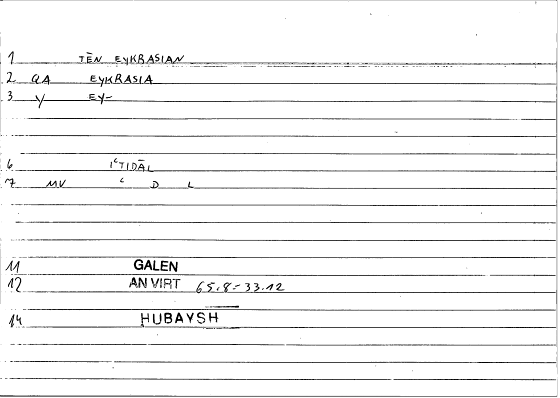 1 TĒN EYKRASIAN
2 QA EYKRASIA
3 Y EY-
6 IʿTIDĀL
7 MV ʿ D L
11 GALEN
12 AN VIRT 65.8 = 33.12
14 ḤUBAYSH